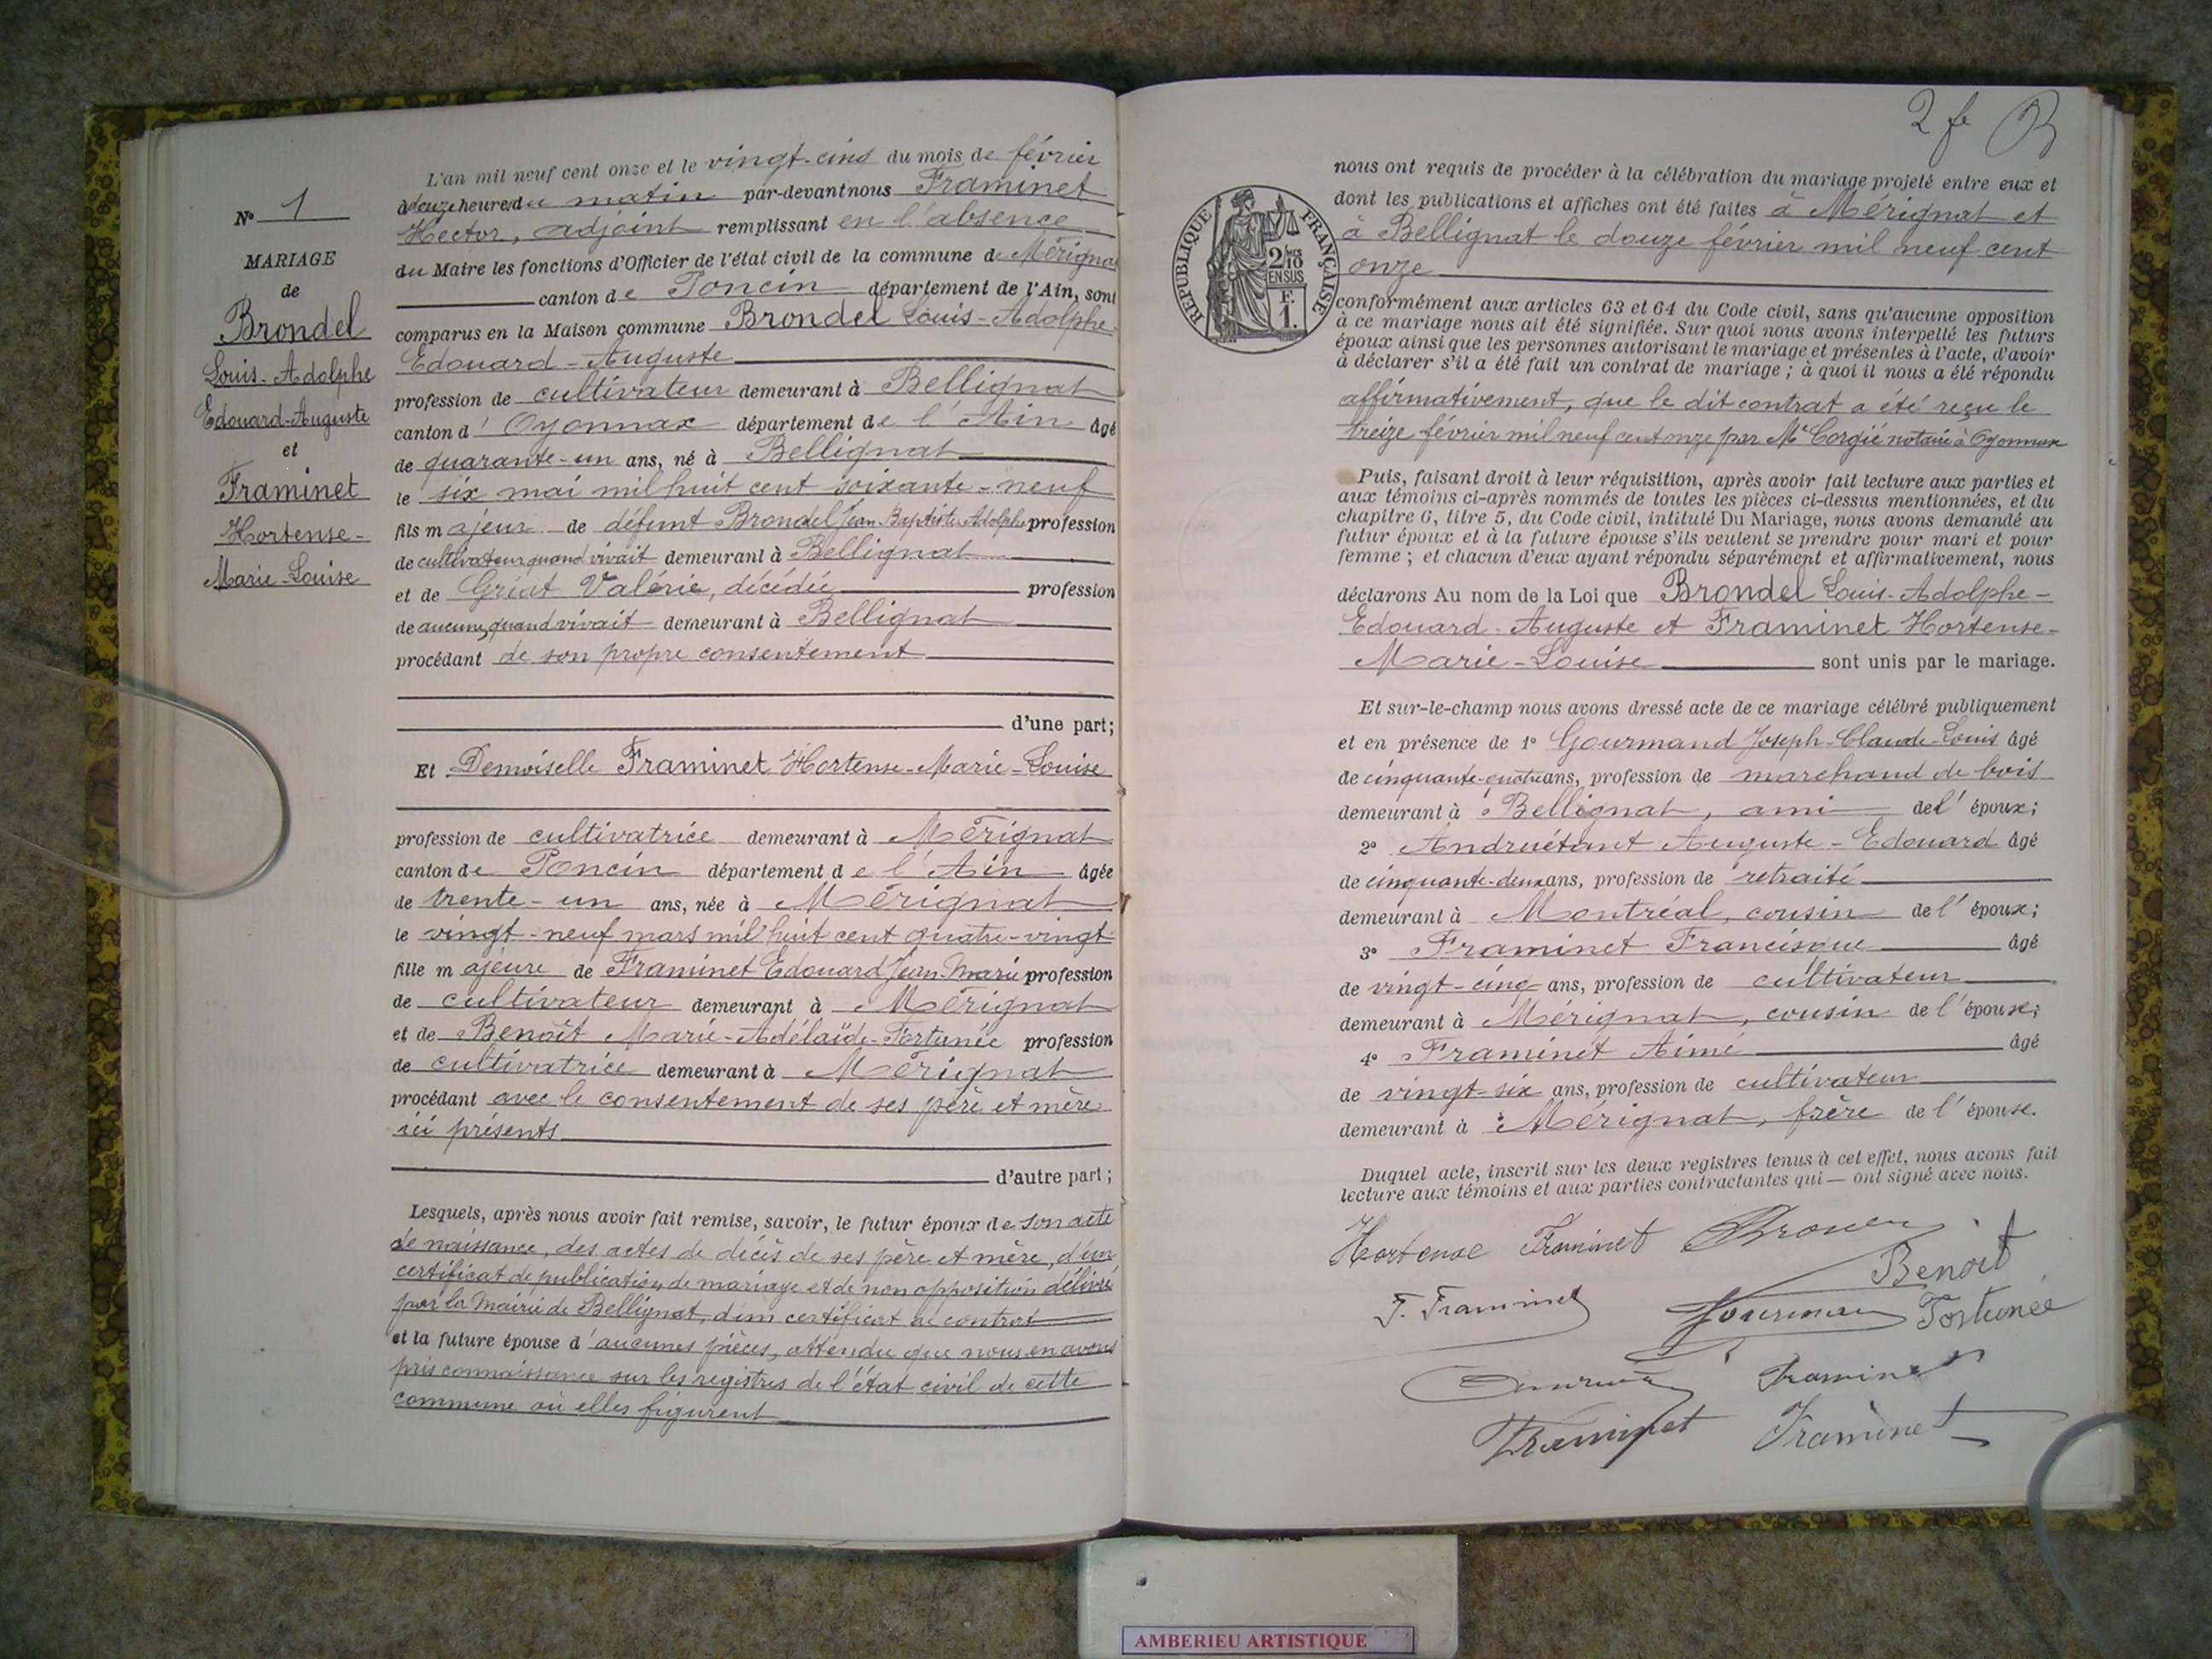 L'an mil neuf cent onze et le vingt-cinq du mois de février
à heures du matin par-devant nous Framinet
Hector, adjoint remplissant en l'absence
du Maire les fonctions d'Officier de l'état civil de la commune de Mérignat
canton de Poncin département de l'Ain, sont
comparus en la Maison commune Brondel Louis-Adolphe
Edouard-Auguste
profession de cultivateur demeurant à Bellignat
canton d'Oyonnax département de l'Ain âgé
de quarante-un ans, né à Bellignat
le six mai mil huit cent soixante-neuf
fils majeur de défunt Brondel Jean-Baptiste Adolphe profession
de cultivateur quand vivait demeurant à Bellignat
et de Griat Valérie, décédée profession
de aucune, quand vivait demeurant à Bellignat
procédant de son propre consentement
d'une part;
Et Demoiselle Framinet Hortense-Marie-Louise
profession de cultivatrice demeurant à Mérignat
canton de Poncin département de l'Ain âgée
de trente-un ans, née à Mérignat
le vingt-neuf mars mil huit cent quatre-vingt
fille majeure de Framinet Edouard Jean-Marie profession
de cultivateur demeurant à Mérignat
et de Benoît Marie-Adélaïde-Fortunée profession
de cultivatrice demeurant à Mérignat
procédant avec le consentement de ses père et mère
ici présents
d'autre part;
Lesquels, après nous avoir fait remise, savoir, le futur époux de son acte
de naissance, des actes de décès de ses père et mère, d'un
certificat de publication de mariage et de non opposition délivré
par la Mairie de Bellignat, d'un certificat de contrat
et la future épouse d'aucunes pièces, attendu que nous en avons
pris connaissance sur les registres de l'état civil de cette
commune où elles figurent
N° 1
MARIAGE
de
Brondel
Louis-Adolphe
Edouard-Auguste
et
Framinet
Hortense-
Marie-Louise
2 f
RÉPUBLIQUE FRANÇAISE
2/10
EN SUS
F.
1.
nous ont requis de procéder à la célébration du mariage projeté entre eux et
dont les publications et affiches ont été faites à Mérignat et
à Bellignat le douze février mil neuf cent
onze
conformément aux articles 63 et 64 du Code civil, sans qu'aucune opposition
à ce mariage nous ait été signifiée. Sur quoi nous avons interpellé les futurs
époux ainsi que les personnes autorisant le mariage et présentes à l'acte, d'avoir
à déclarer s'il a été fait un contrat de mariage; à quoi il nous a été répondu
affirmativement, que le dit contrat a été reçu le
treize février mil neuf cent onze par Me Corgié notaire à Oyonnax
Puis, faisant droit à leur réquisition, après avoir fait lecture aux parties et
aux témoins ci-après nommés de toutes les pièces ci-dessus mentionnées, et du
chapitre 6, titre 5, du Code civil, intitulé Du Mariage, nous avons demandé au
futur époux et à la future épouse s'ils veulent se prendre pour mari et pour
femme; et chacun d'eux ayant répondu séparément et affirmativement, nous
déclarons Au nom de la Loi que Brondel Louis-Adolphe-
Edouard-Auguste et Framinet Hortense-
Marie-Louise sont unis par le mariage.
Et sur-le-champ nous avons dressé acte de ce mariage célébré publiquement
et en présence de 1° Gourmand Joseph-Claude-Louis âgé
de cinquante-quatre ans, profession de marchand de bois
demeurant à Bellignat, ami de l'époux;
2° Andruétant Auguste-Edouard âgé
de cinquante-deux ans, profession de retraité
demeurant à Montréal, cousin de l'époux;
3° Framinet Francisque âgé
de vingt-cinq ans, profession de cultivateur
demeurant à Mérignat, cousin de l'épouse;
4° Framinet Aimé âgé
de vingt-six ans, profession de cultivateur
demeurant à Mérignat, frère de l'épouse.
Duquel acte, inscrit sur les deux registres tenus à cet effet, nous avons fait
lecture aux témoins et aux parties contractantes qui — ont signé avec nous.
Hortense Framinet
Benoit
Fortunée
F. Framinet
Framinet
Framinet Framinet
AMBERIEU ARTISTIQUE